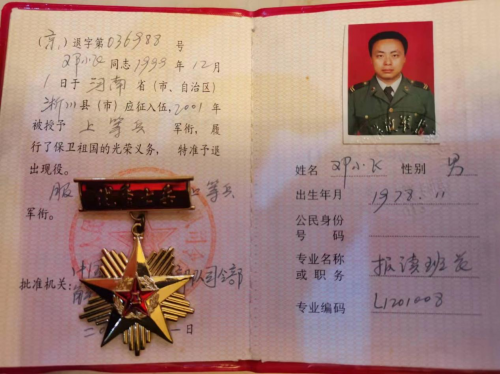 (京)退字第036988号
邓小飞同志1999年12月
1日于河南省(市、自治区)
淅川县(市)应征入伍,2001年
被授予上等兵军衔,履
行了保卫祖国的光荣义务,特准予退
出现役。
服 上等兵
军衔。
批准机关: 队司令部
日
姓名 邓小飞 性别 男
出生年月 1978.11
公民身份
号码
专业名称
或职务 报读班长
专业编码 L1201008